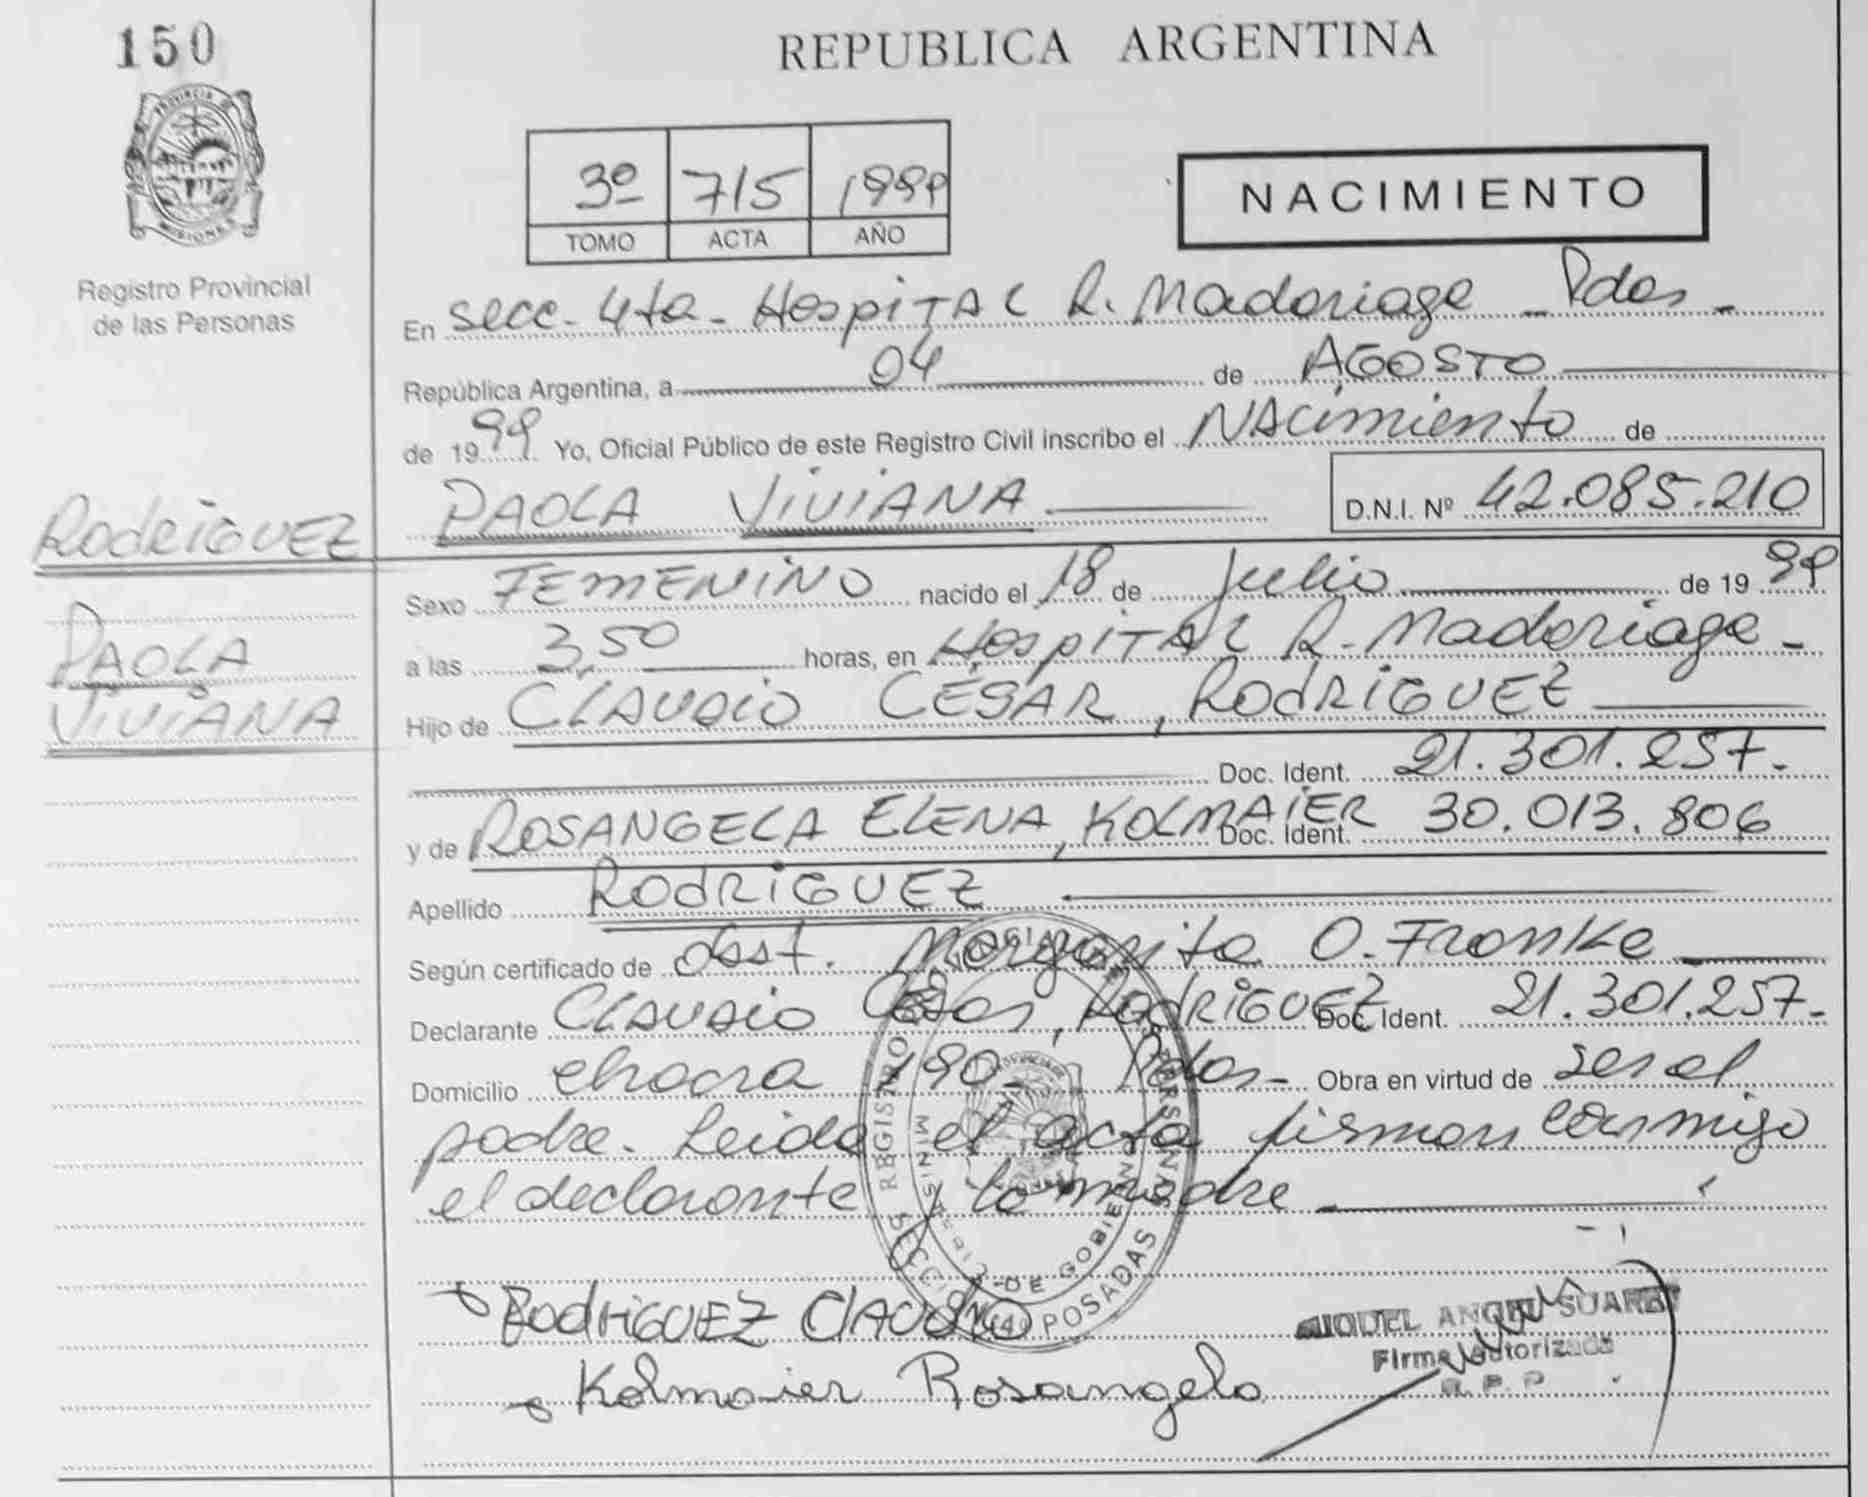 150
REPUBLICA ARGENTINA
PROVINCIA DE
MISIONES
Registro Provincial
de las Personas
3º 715 1999
TOMO ACTA AÑO
NACIMIENTO
En secc. 4ta. Hospital R. Madariaga Pdas.
República Argentina, a 04 de AGOSTO
de 1999 Yo, Oficial Público de este Registro Civil inscribo el NACimiento de
PAOLA ViViANA D.N.I. Nº 42.085.210
RodRiGUEZ
PAOLA
ViViANA
Sexo FEMENiNO nacido el 18 de Julio de 1999
a las 3,50 horas, en HospiTAL R. Madariaga
Hijo de CLAUDiO CÉSAR, RodRiGUEZ
Doc. Ident. 21.301.257.
y de ROSANGELA ELENA, KOLMAiER Doc. Ident. 30.013.806
Apellido RodRiGUEZ
Según certificado de obst. Margarita O. Franke
Declarante CLAUDiO César, RodRiGUEZ Doc. Ident. 21.301.257.
Domicilio chacra 190 Pdas. Obra en virtud de ser el
padre. Leida el acta firman conmigo
el declarante y la madre
RodRiGUEZ CLAUDiO
Kolmaier Rosangela
MIGUEL ANGEL SUAREZ
Firma Autorizada
R. P. P
REGISTRO PERSONAS
MINISTERIO DE GOBIERNO
SECCION 4 POSADAS